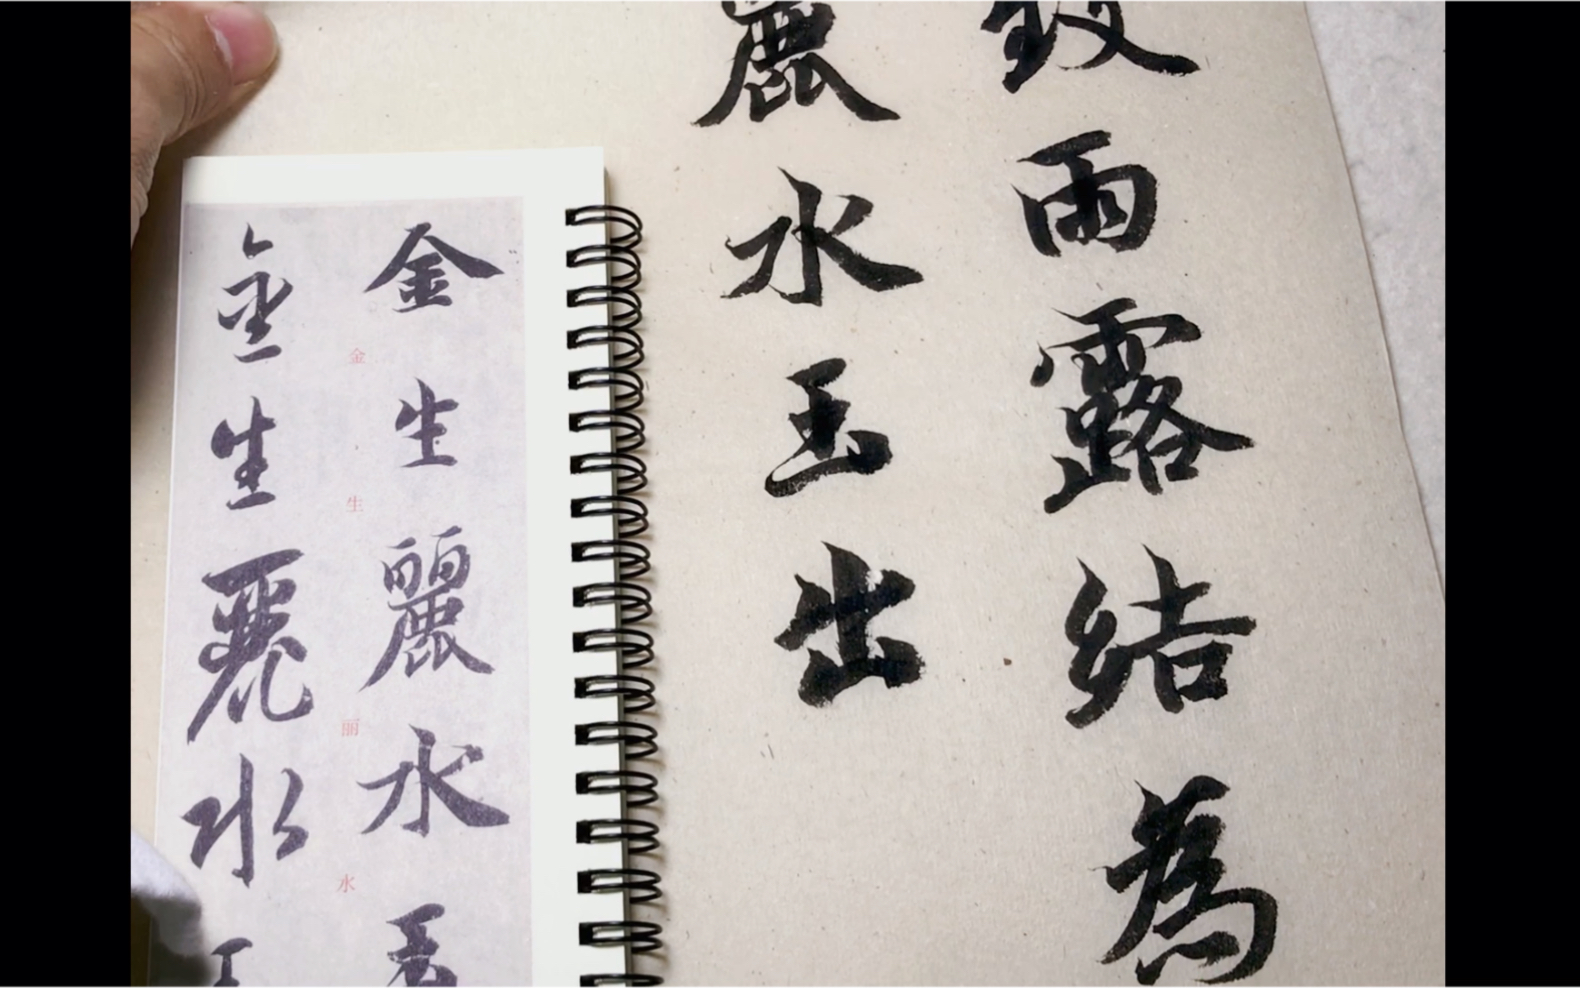 致雨露結為
麗水玉出
金生麗水玉
金生丽水
金生麗水